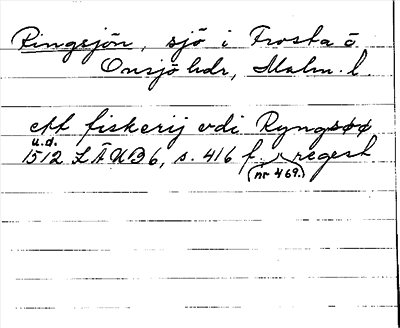 Ringsjön, sjö i Frosta o
Onsjö hdr, Malm. l.
ett fiskerij vdi Ryngsøø
u.d.
1512 LÄUB 6, s. 416 f. regest
(nr 469.)